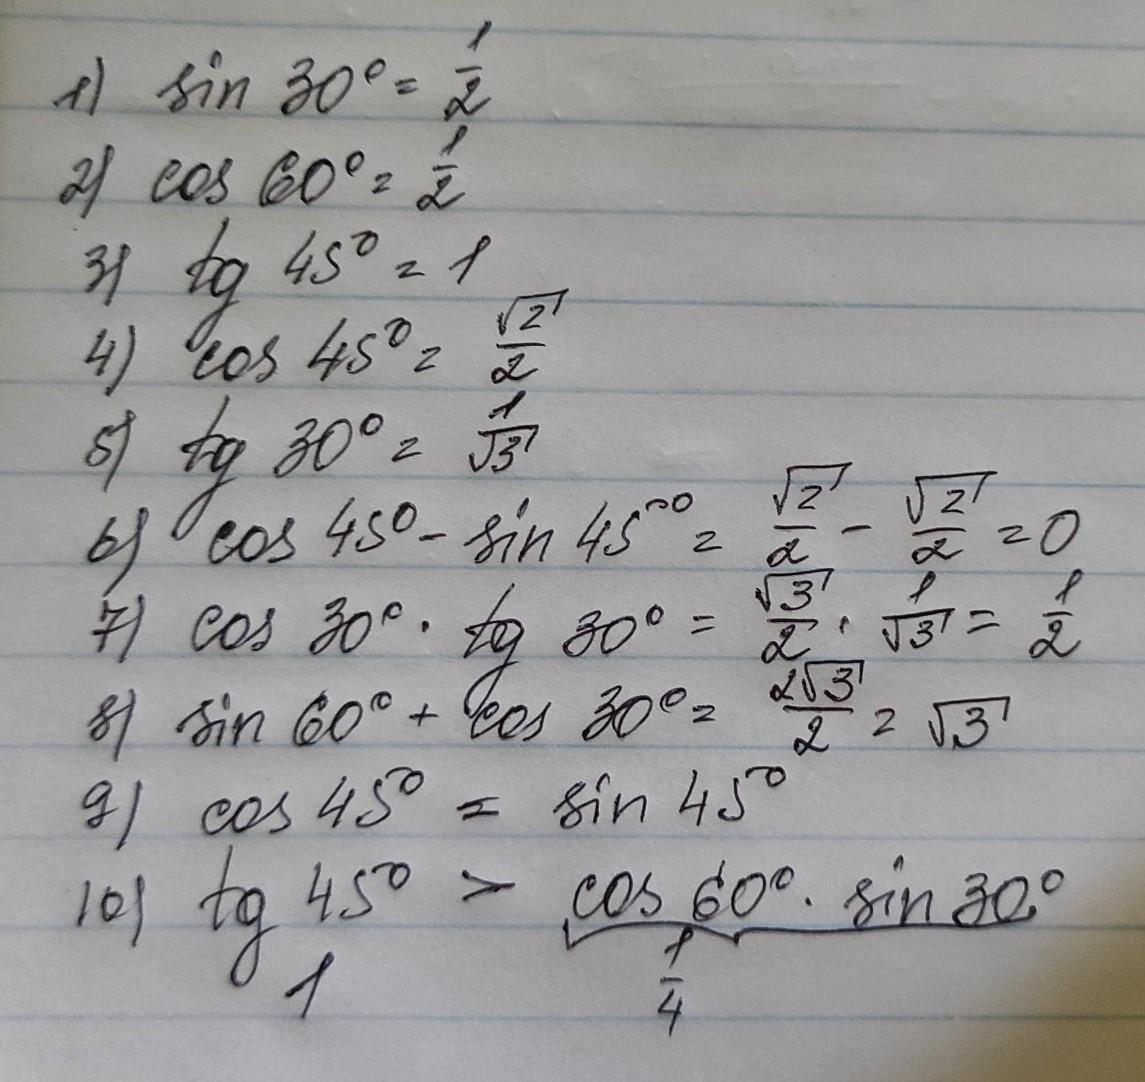 1) sin 30° = 1/2
2) cos 60° = 1/2
3) tg 45° = 1
4) cos 45° = √2/2
5) tg 30° = 1/√3
6) cos 45° - sin 45° = √2/2 - √2/2 = 0
7) cos 30° · tg 30° = √3/2 · 1/√3 = 1/2
8) sin 60° + cos 30° = 2√3/2 = √3
9) cos 45° = sin 45°
10) tg 45° > cos 60° · sin 30°
1 1/4